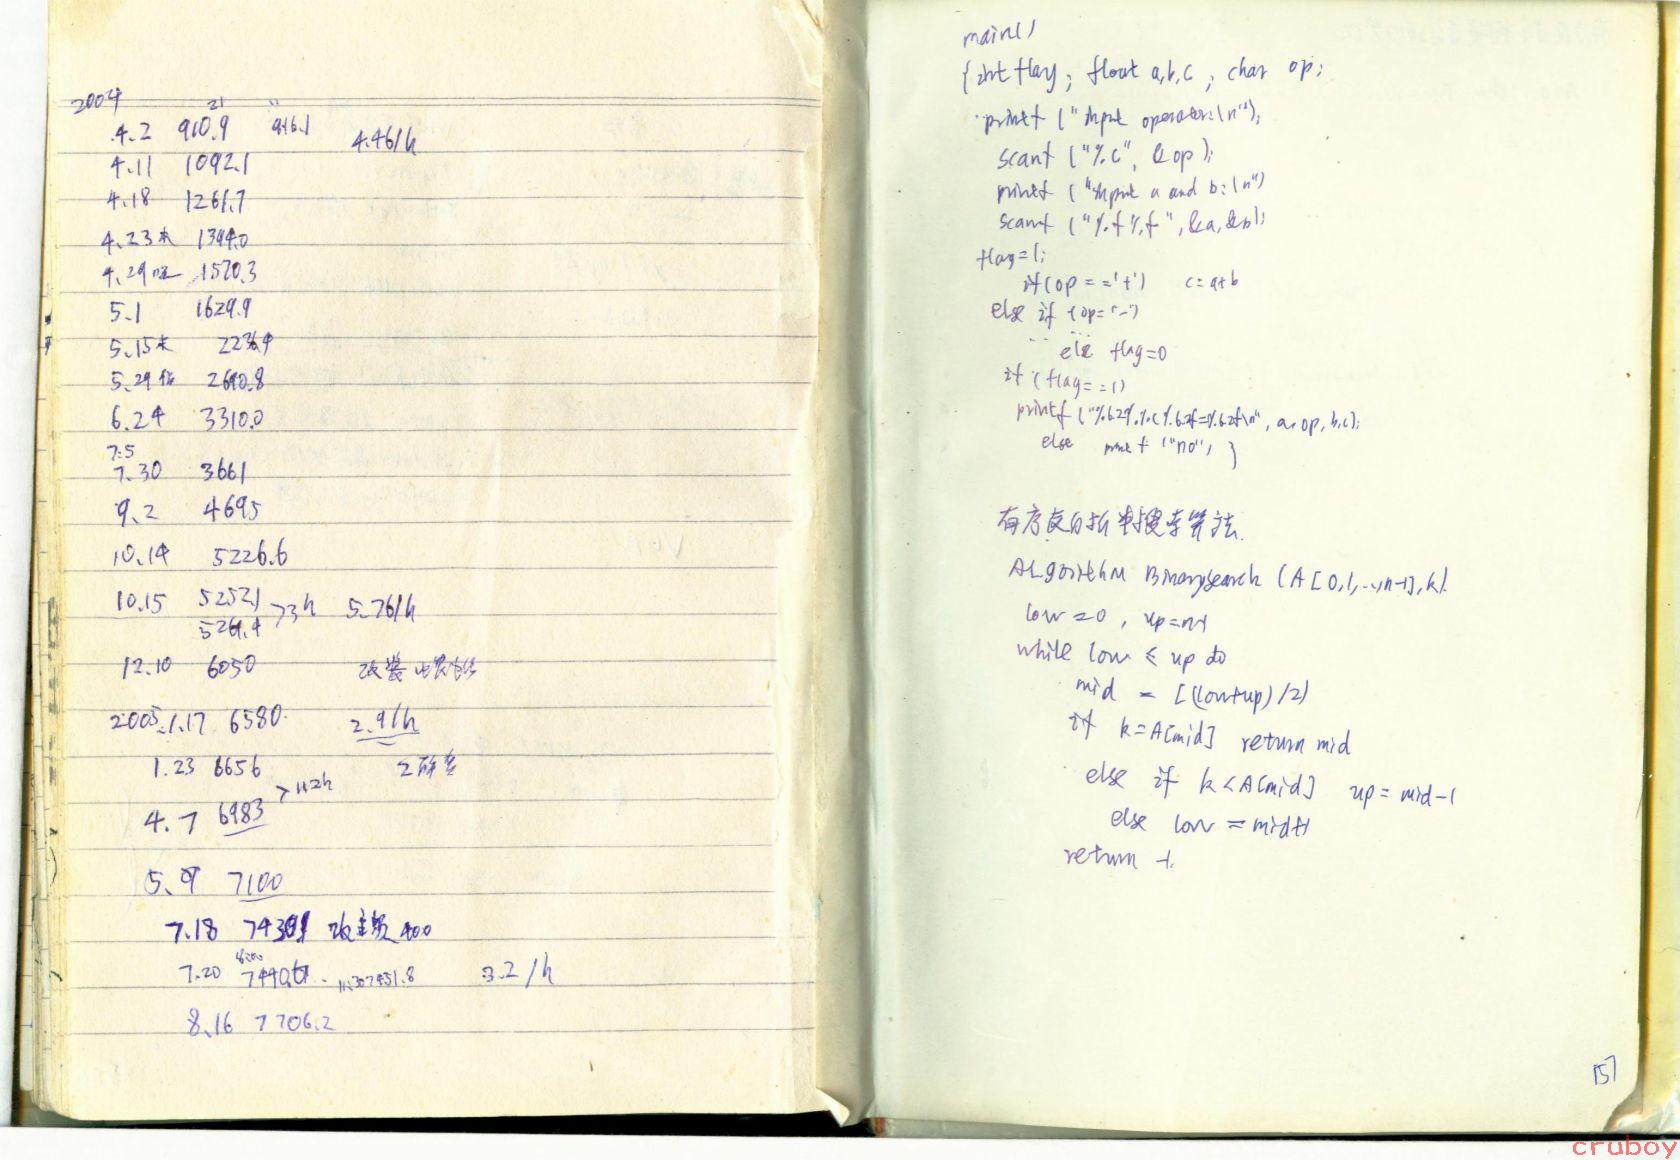 2004
21
4.2 910.9 916.1 4.46/h
4.11 1092.1
4.18 1261.7
4.23 1394.0
4.29 1570.3
5.1 1629.9
5.15
5.29 2690.8
6.24 3310.0
7.5
7.30 3661
9.2 4695
10.14 5226.6
10.15 5252.1 >3h 5.76/h
12.10 6050 改装
2005.1.17 6580. 2.9/h
1.23 6656
4.7 6983
5.9 7100
7.18 改 400
7.20 3.2/h
8.16 7706.2
main()
{int flag; float a,b,c; char op;
printf ("input operator:\n");
scanf ("%c", &op);
printf ("input a and b:\n")
scanf ("%f%f", &a,&b);
flag=1;
if(op=='+') c=a+b
else if (op='-')
...
else flag=0
if (flag==1)
printf ("%6.2f%c%6.2f=%6.2f\n", a,op,b,c);
else print f ("no"; }
有序表的折半搜索算法.
ALgorithM Binarysearch (A[0,1,...,n-1],k)
low=0, up=n-1
while low ≤ up do
mid = [(low+up)/2]
if k=A[mid] return mid
else if k<A[mid] up=mid-1
else low=mid+1
return -1.
157
cruboy